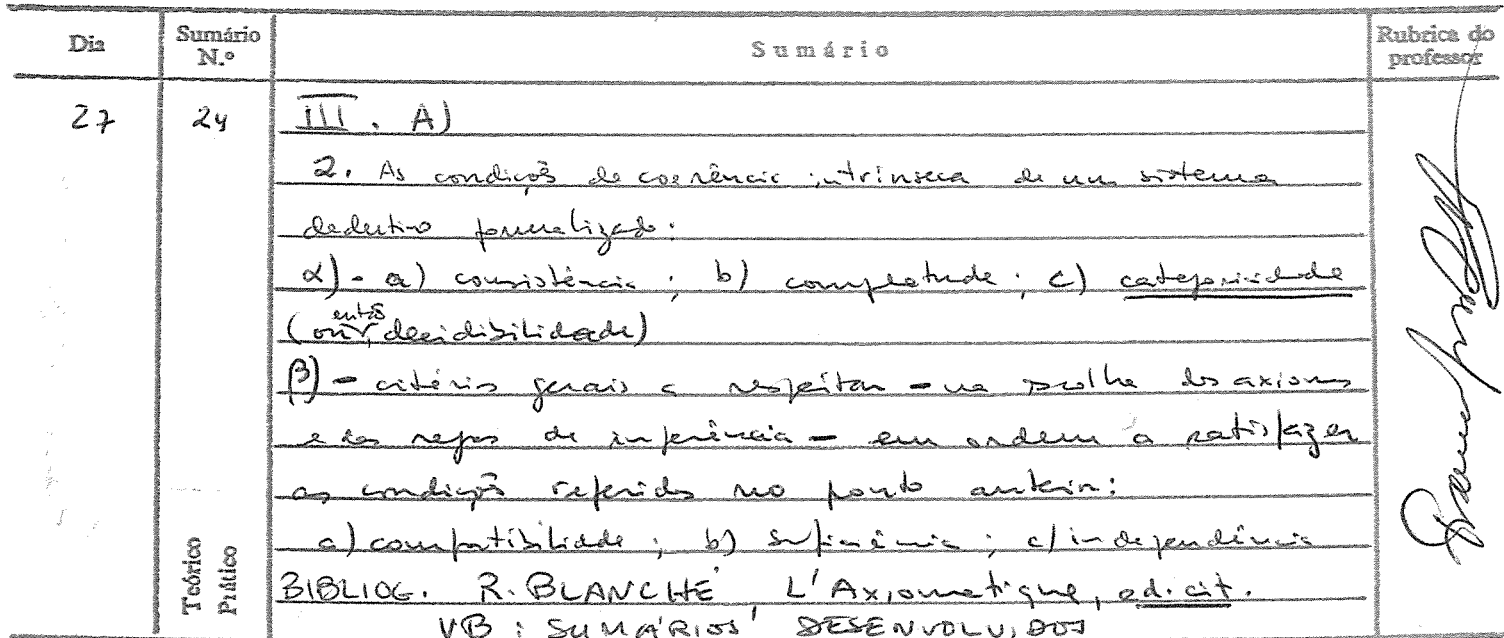 Dia
Sumário N.º
Sumário
Rubrica do professor
27
24
III. A)
2. As condições de coerência intrínseca de um sistema
dedutivo formalizado:
α) - a) consistência; b) completude; c) categoricidade
(ou então, decidibilidade)
β) - critérios gerais a respeitar - na escolha dos axiomas
e das regras de inferência - em ordem a satisfazer
as condições referidas no ponto anterior:
a) compatibilidade; b) suficiência; c) independência
Teórico
Prático
BIBLIOG. R. BLANCHÉ, L'Axiomatique, ed. cit.
VB: SUMÁRIOS DESENVOLVIDOS